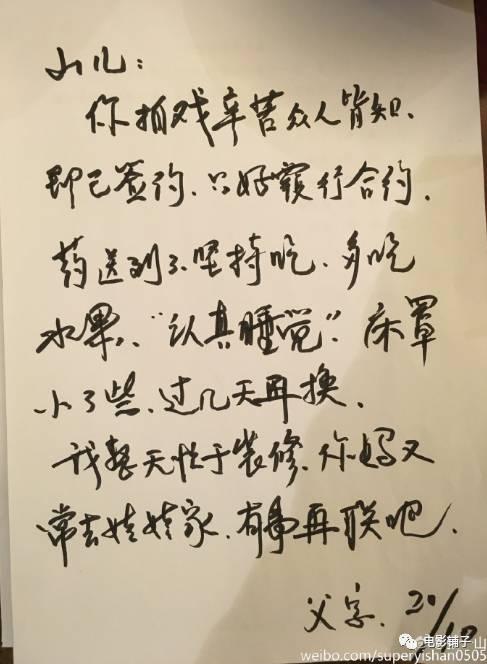 山儿：
你拍戏辛苦众人皆知.
即已签约.只好履行合约.
药送到了.坚持吃.多吃
水果."认真睡觉".床罩
小了些.过几天再换.
我整天忙于装修.你妈又
常去娃娃家.有事再联吧.
父字. 20/12
电影铺子山
weibo.com/superyishan0505